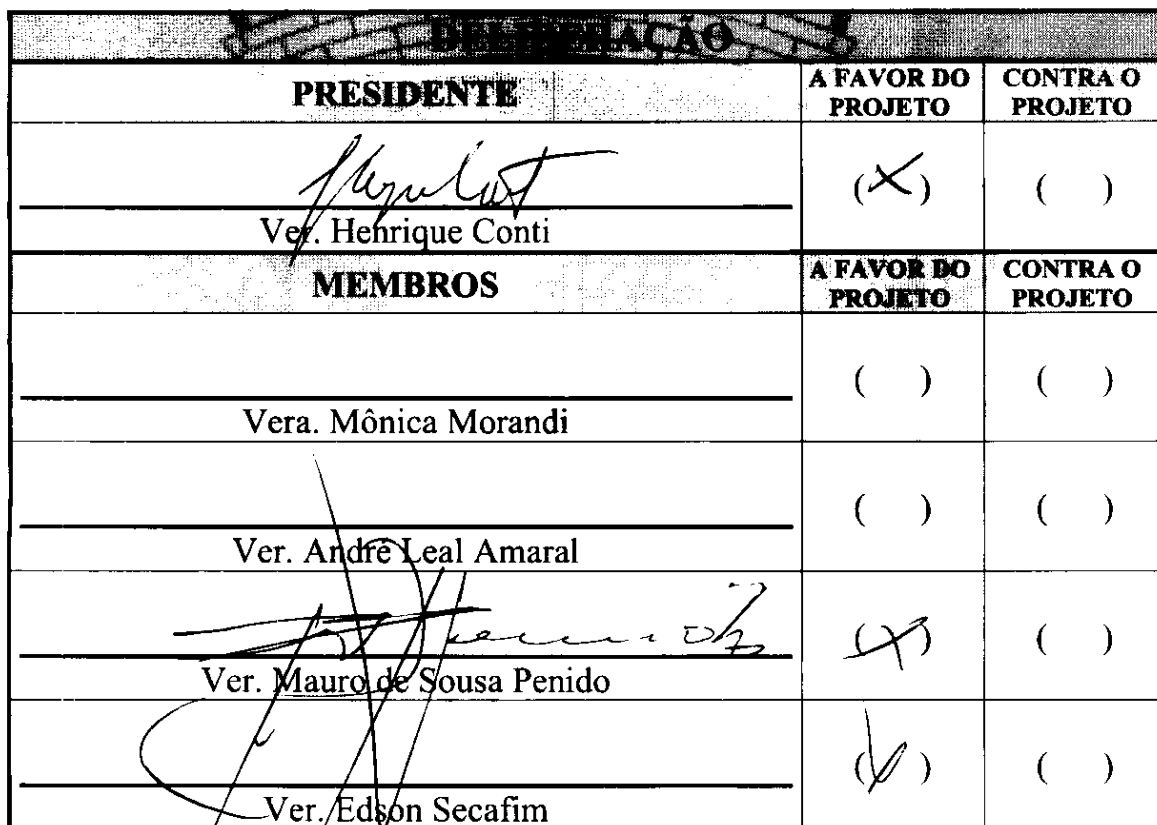 DELIBERAÇÃO
PRESIDENTE A FAVOR DO PROJETO CONTRA O PROJETO
(X) ( )
Ver. Henrique Conti
MEMBROS A FAVOR DO PROJETO CONTRA O PROJETO
( ) ( )
Vera. Mônica Morandi
( ) ( )
Ver. André Leal Amaral
(X) ( )
Ver. Mauro de Sousa Penido
( ) ( )
Ver. Edson Secafim